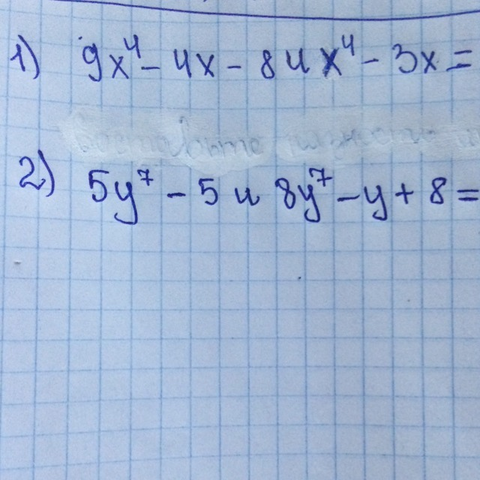 1) 9x⁴ - 4x - 8 и x⁴ - 3x =
2) 5y⁷ - 5 и 8y⁷ - y + 8 =